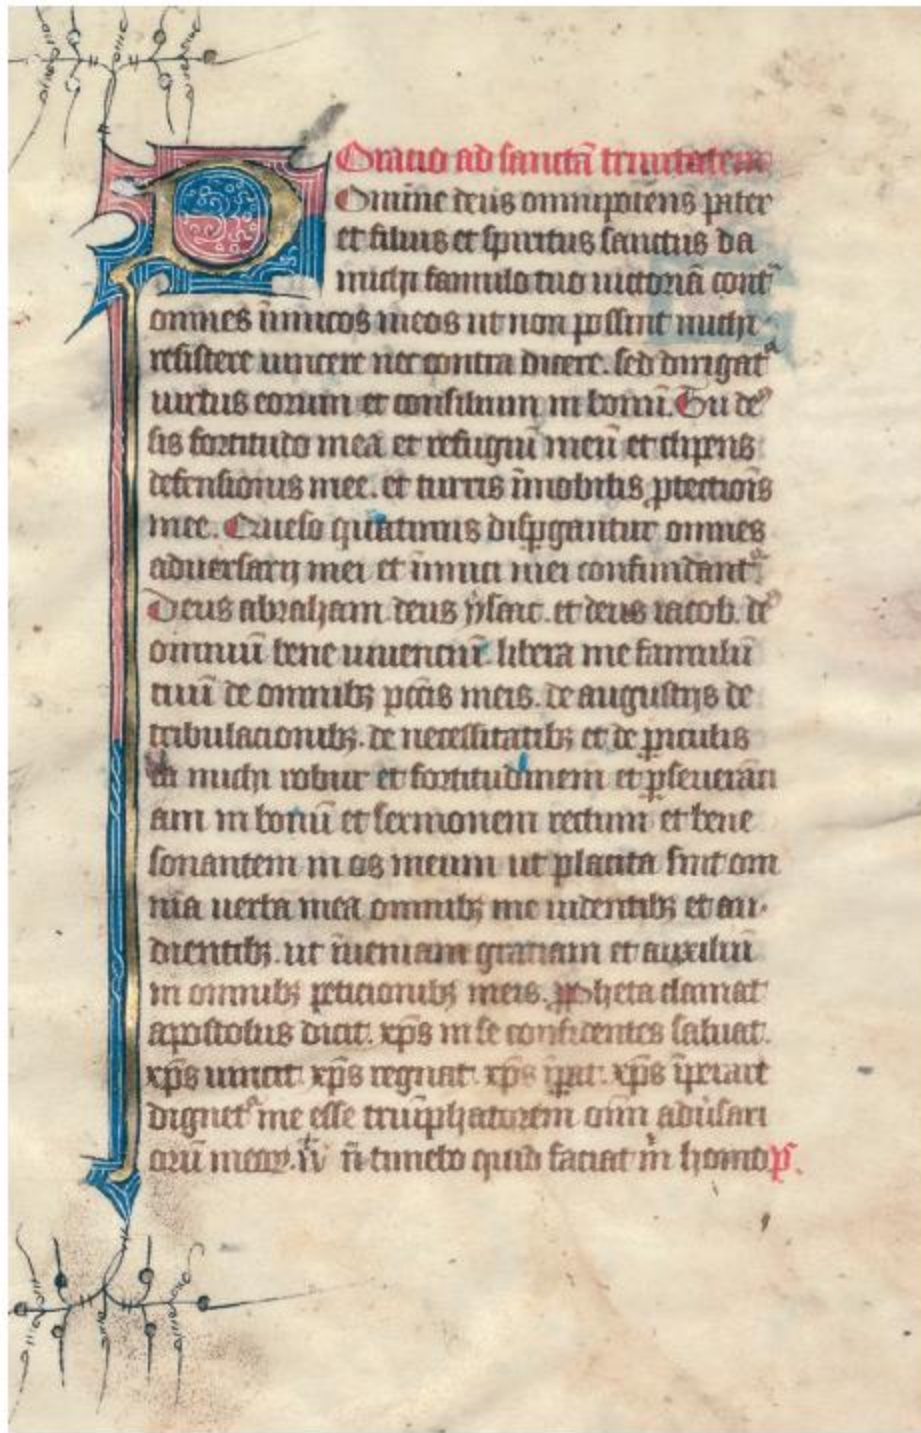 Oracio ad sanctā trinitatem
Domine deus omnipotens pater
et filius et spiritus sanctus da
michi famulo tuo uictoriā cont̃
omnes īimicos meos ut non possint michi
resistere uincere nec contra dicere. sed dirigat᷑
uirtus eorum et consilium in bonū. Tu de᷒
sis fortitudo mea et refugiū meū et clipeus
defensionis mee. et turris īmobilis ꝓtectiōis
mee. Queso quatinus disꝑgantur omnes
aduersarij mei et inimici mei confundant᷑
Deus abraham deus ysaac. et deus iacob. de᷒
omniū bene uiuenciū libera me famulū
tuū de omnibꝫ pctīs meis. de angustijs de
tribulacionibꝫ. de necessitatibꝫ et de ꝑiculis
da michi robur et fortitudinem et ꝑseuerān
am in bonū et sermonem rectum et bene
sonantem in os meum ut placita sint om
nia uerba mea omnibꝫ me uidentibꝫ et au-
dientibꝫ. ut īueniam gratiam et auxiliū
in omnibꝫ peticionibꝫ meis. ꝓpheta clamat
apostolus dicit. xp̄s in se confidentes saluat.
xp̄s uincit. xp̄s regnat. xp̄s īꝑat. xp̄s īpetrare
dignet᷑ me esse triūphatorem oīm aduīsari
orū meoꝝ. ñ timebo quid faciat m̄ homo p̄s.